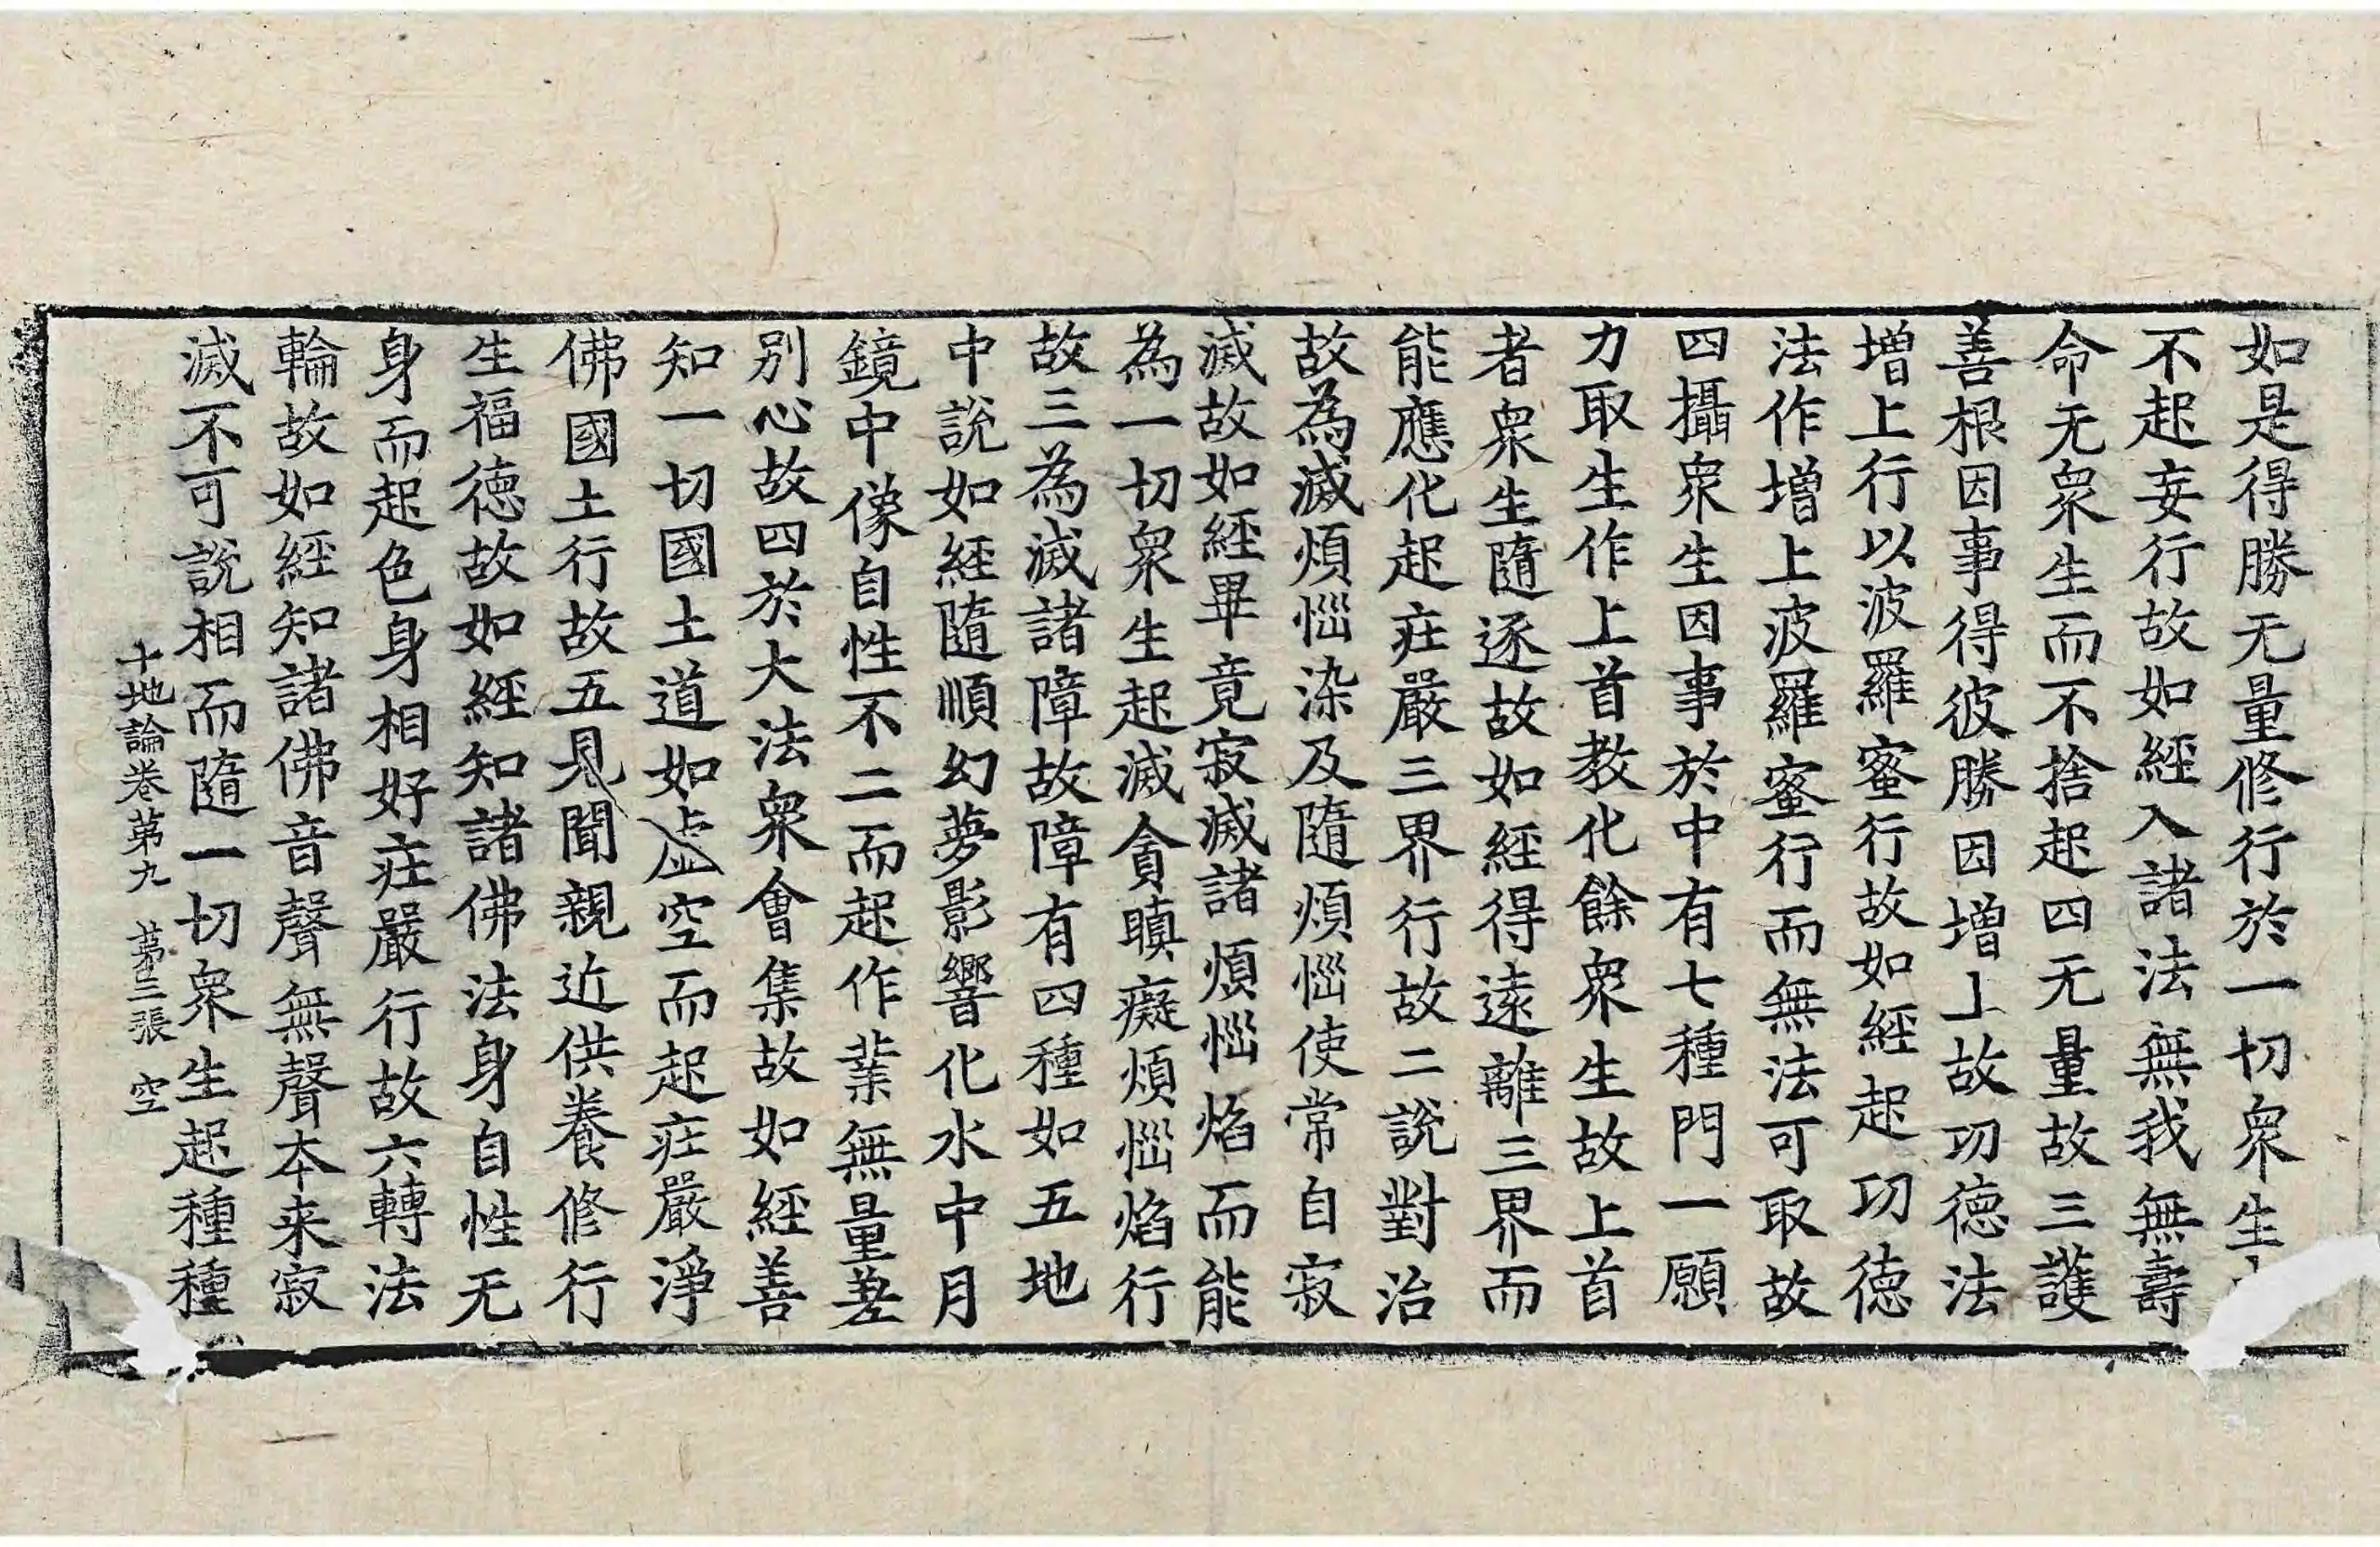 如是得勝无量修行於一切衆生
不起妄行故如經入諸法無我無壽
命无衆生而不捨起四无量故三護
善根因事得彼勝因增上故功德法
增上行以波羅蜜行故如經起功德
法作增上波羅蜜行而無法可取故
四攝衆生因事於中有七種門一願
力取生作上首教化餘衆生故上首
者衆生隨逐故如經得遠離三界而
能應化起庄嚴三界行故二說對治
故為滅煩惱染及隨煩惱使常自寂
滅故如經畢竟寂滅諸煩惱焰而能
為一切衆生起滅貪瞋癡煩惱焰行
故三為滅諸障故障有四種如五地
中說如經隨順幻夢影響化水中月
鏡中像自性不二而起作業無量差
別心故四於大法衆會集故如經善
知一切國土道如虛空而起庄嚴淨
佛國土行故五見聞親近供養修行
生福德故如經知諸佛法身自性无
身而起色身相好庄嚴行故六轉法
輪故如經知諸佛音聲無聲本来寂
滅不可說相而隨一切衆生起種種
十地論卷第九 第三張 空